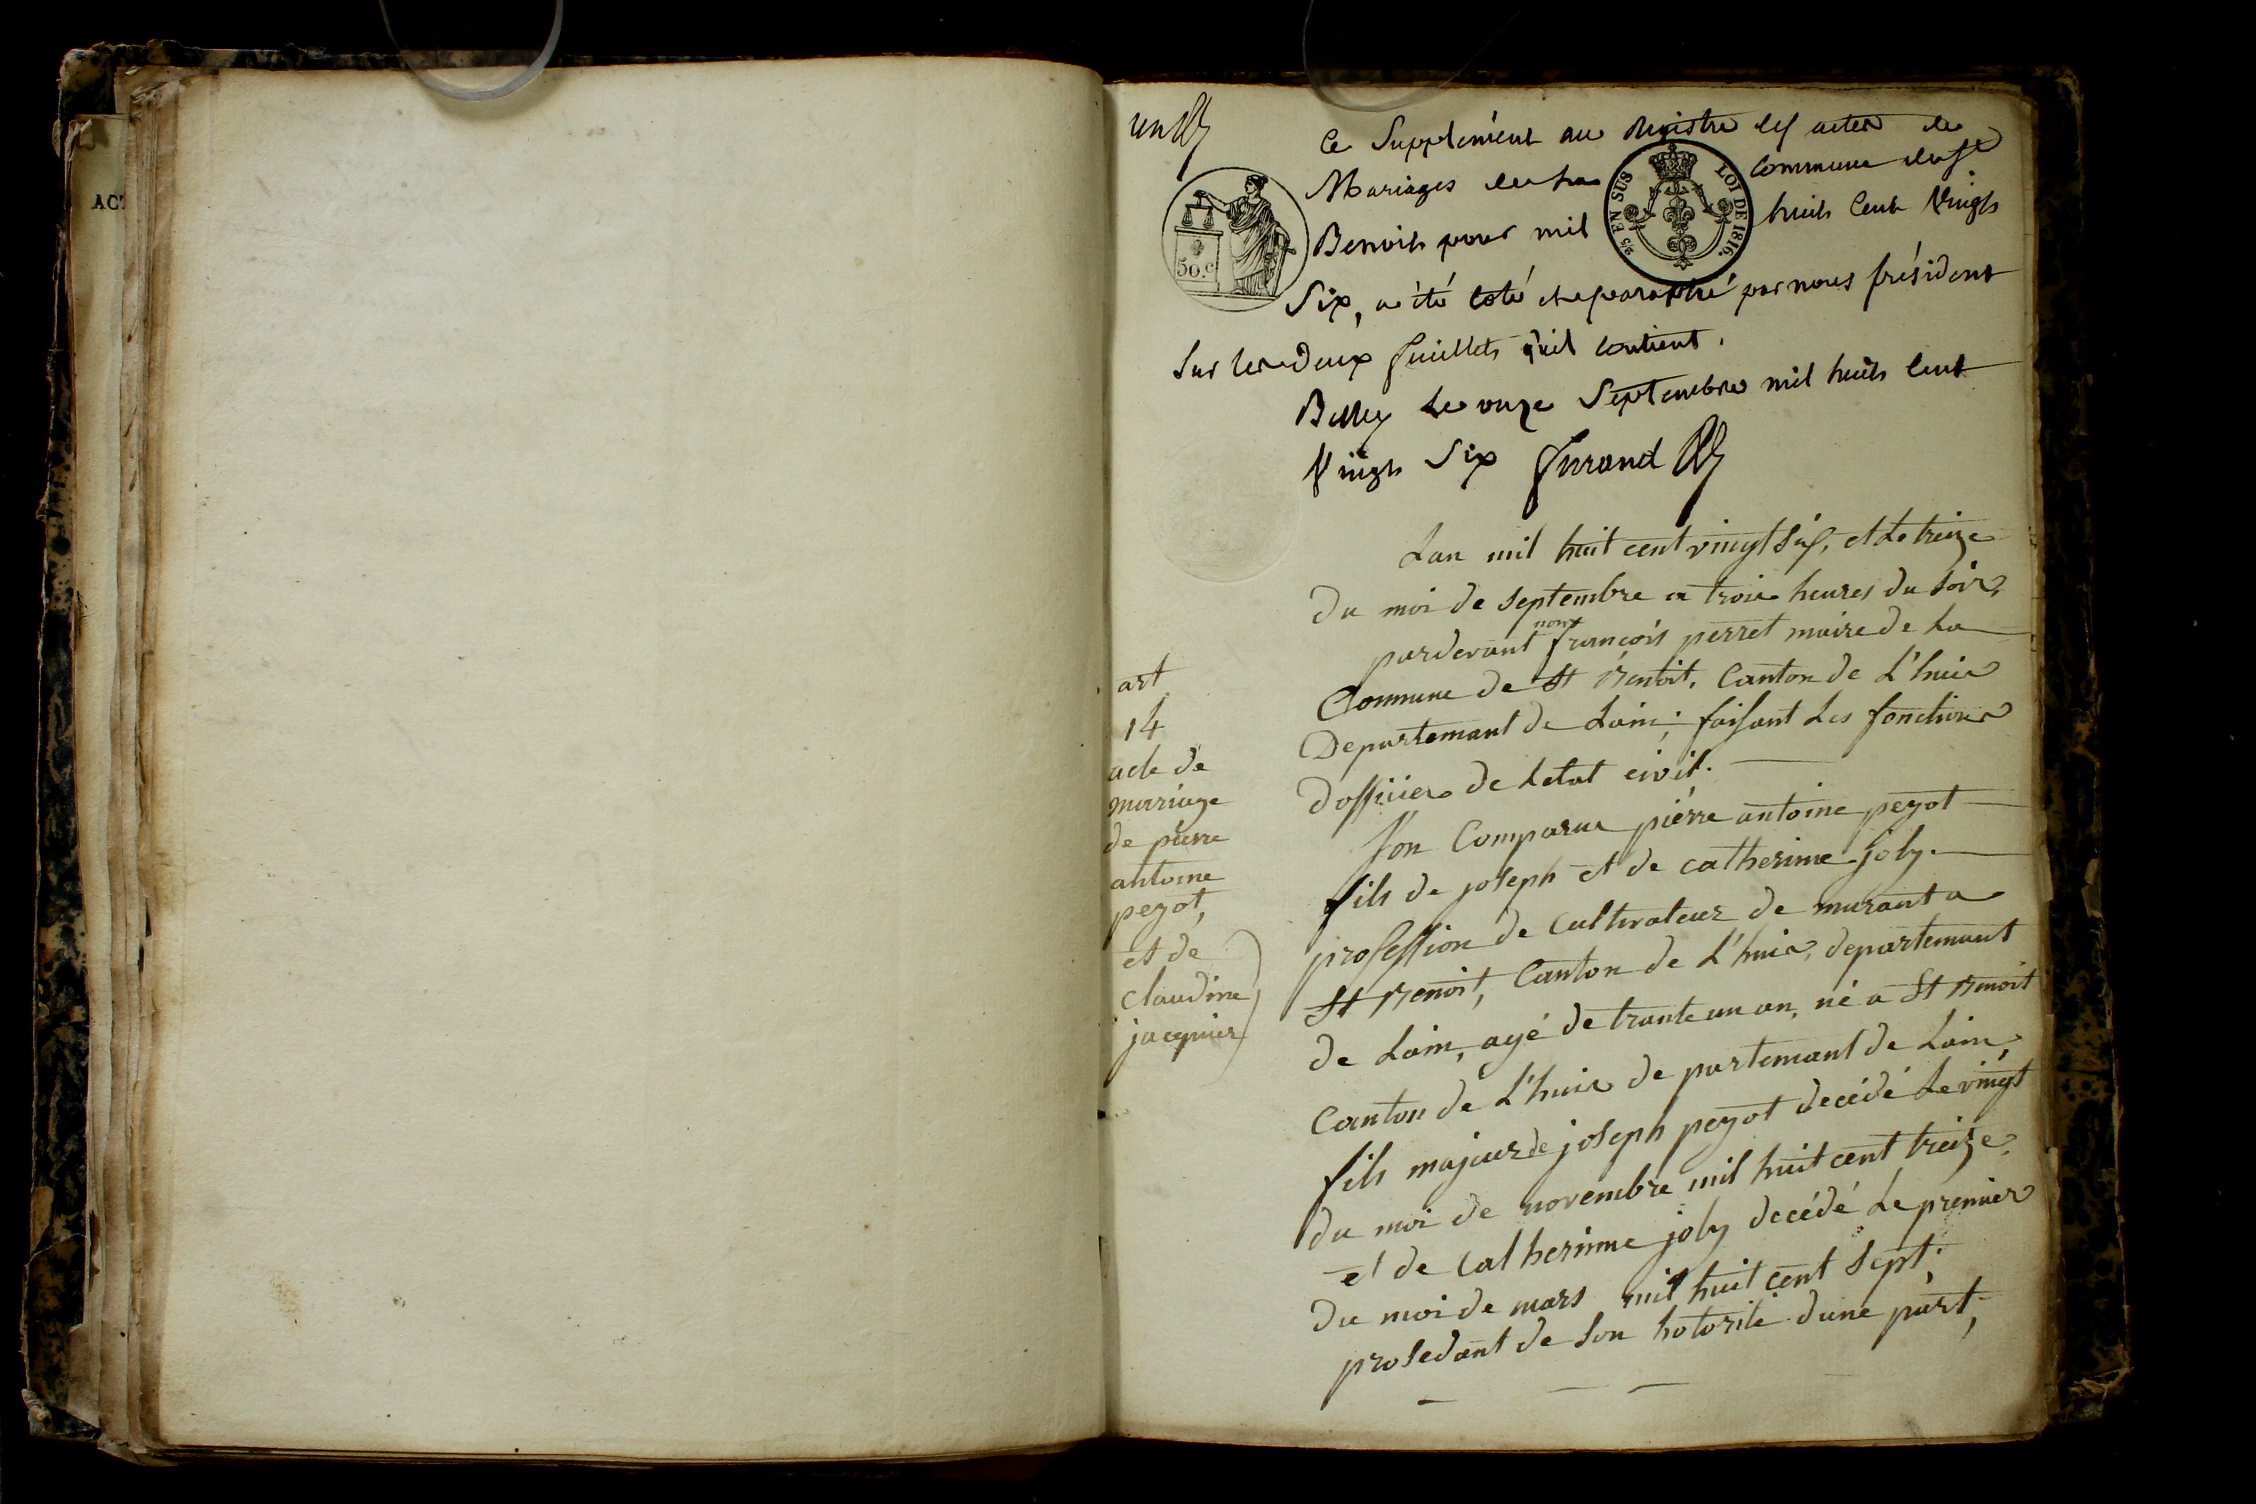 ACT
un
Ce Supplément au Registre des actes de
Mariages de la commune de St
Benoit pour mil huit Cent Vingt
Six, a été coté et paraphé par nous président
Sur les deux feuillets qu'il contient.
Belley le onze Septembre mil huit Cent
Vingt Six Girand
50.c
25 EN SUS
LOI DE 1816.
Lan mil huit cent vingt six, et Le treize
du moi de septembre a trois heures du soir,
pardevant nous françois perret maire de La
Commune de St Benoit, Canton de L'huis
Departemant de Lain; faisant Les fonctions
dofficier de Letat civil.
Son Comparu piérre antoine pezot
fils de joseph et de catherinne joly.
profession de Cultivateur de murant a
St Benoit, Canton de L'huis, departemant
de Lain, agé de trante un an, né a St Benoit
Canton de L'huis de partemant de Lain,
fils majeur de joseph pezot decédé Le vingt
du moi de novembre mil huit cent treize,
et de catherinne joly decédé Le premier
du moi de mars mil huit cent sept,
prosedant de son hotorité dune part,
art
14
acte de
mariage
de pierre
antoine
pezot,
et de
claudine
jacquier